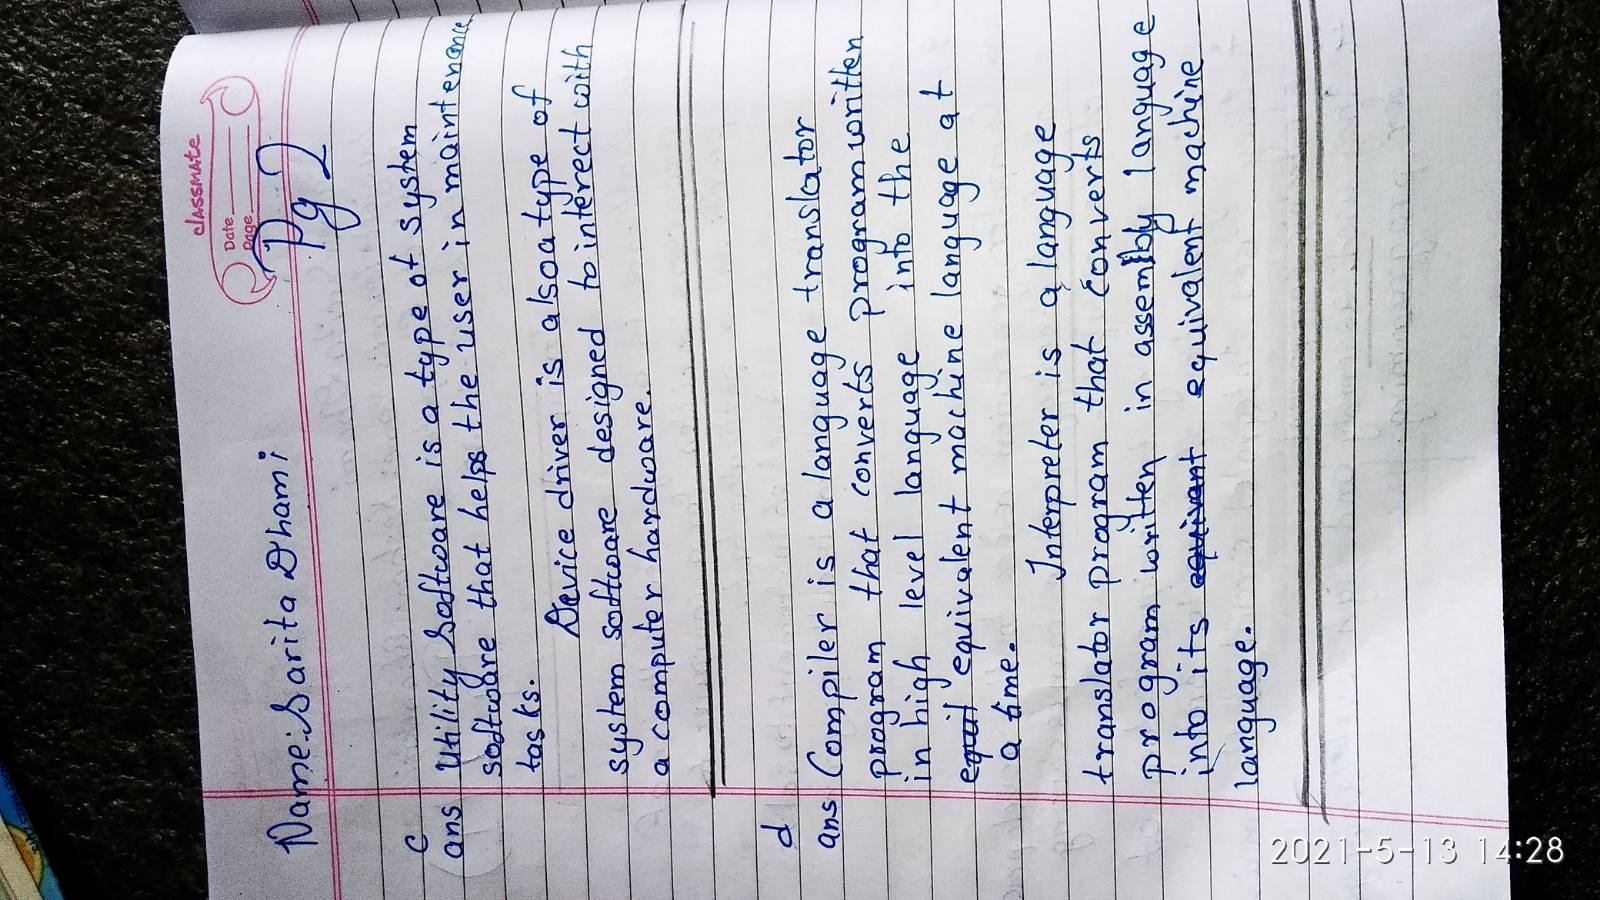 classmate
Date
Page
Pg 2
Name: Sarita Dhami
c
ans Utility Software is a type of system
software that helps the user in maintenance
tasks.
Device driver is also a type of
system software designed to interect with
a computer hardware.
d
ans Compiler is a language translator
program that converts program written
in high level language into the
equil equivalent machine language at
a time.
Interpreter is a language
translator program that converts
program written in assembly language
into its equivant equivalent machine
language.
2021-5-13 14:28